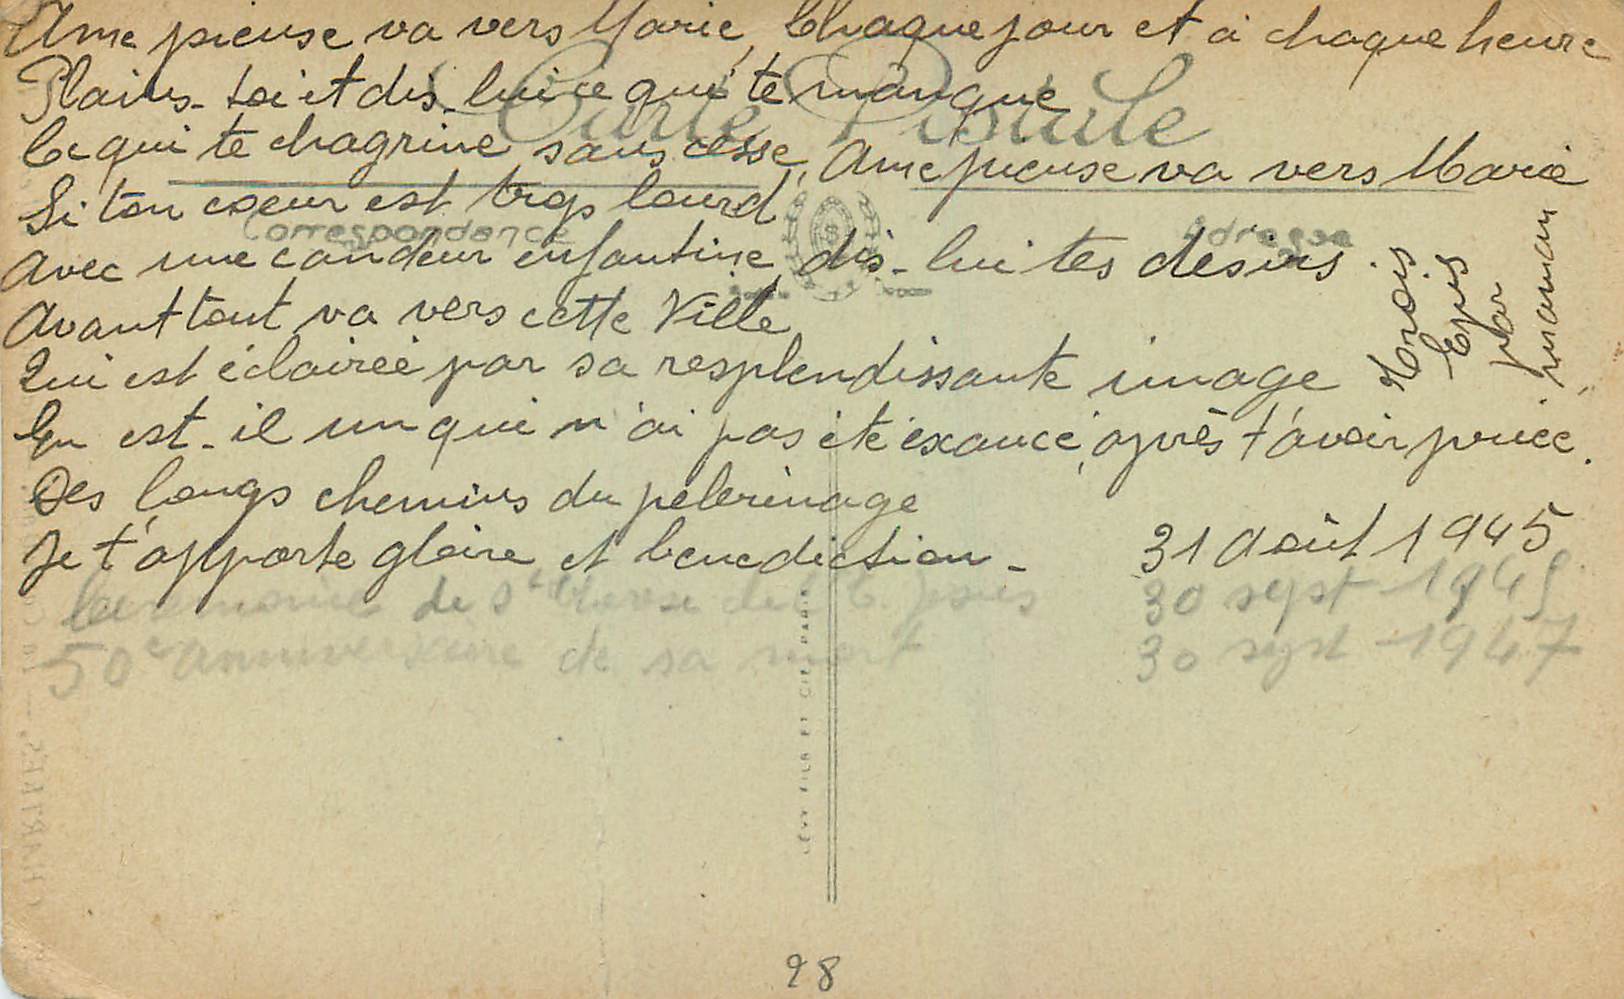 Ame pieuse va vers Marie, Chaque jour et à chaque heure
Plains-toi et dis-lui ce qui te manque
Ce qui te chagrine sans cesse, Ame pieuse va vers Marie
Si ton coeur est trop lourd
Avec une candeur enfantine, dis-lui tes désirs.
Avant tout va vers cette Ville
Qui est éclairée par sa resplendissante image
En est-il un qui n'ai pas été éxaucé, après t'avoir priée.
Des longs chemins du pélerinage
Je t'apporte gloire et benediction - 31 Août 1945
de Ste Therese de l'E. Jesus 30 sept 1945
50e anniversaire de sa mort 30 sept 1947
par
maman
Carte Postale
Correspondance
Adresse
LÉVY FILS ET CIE PARIS
CHARTRES. — La
28